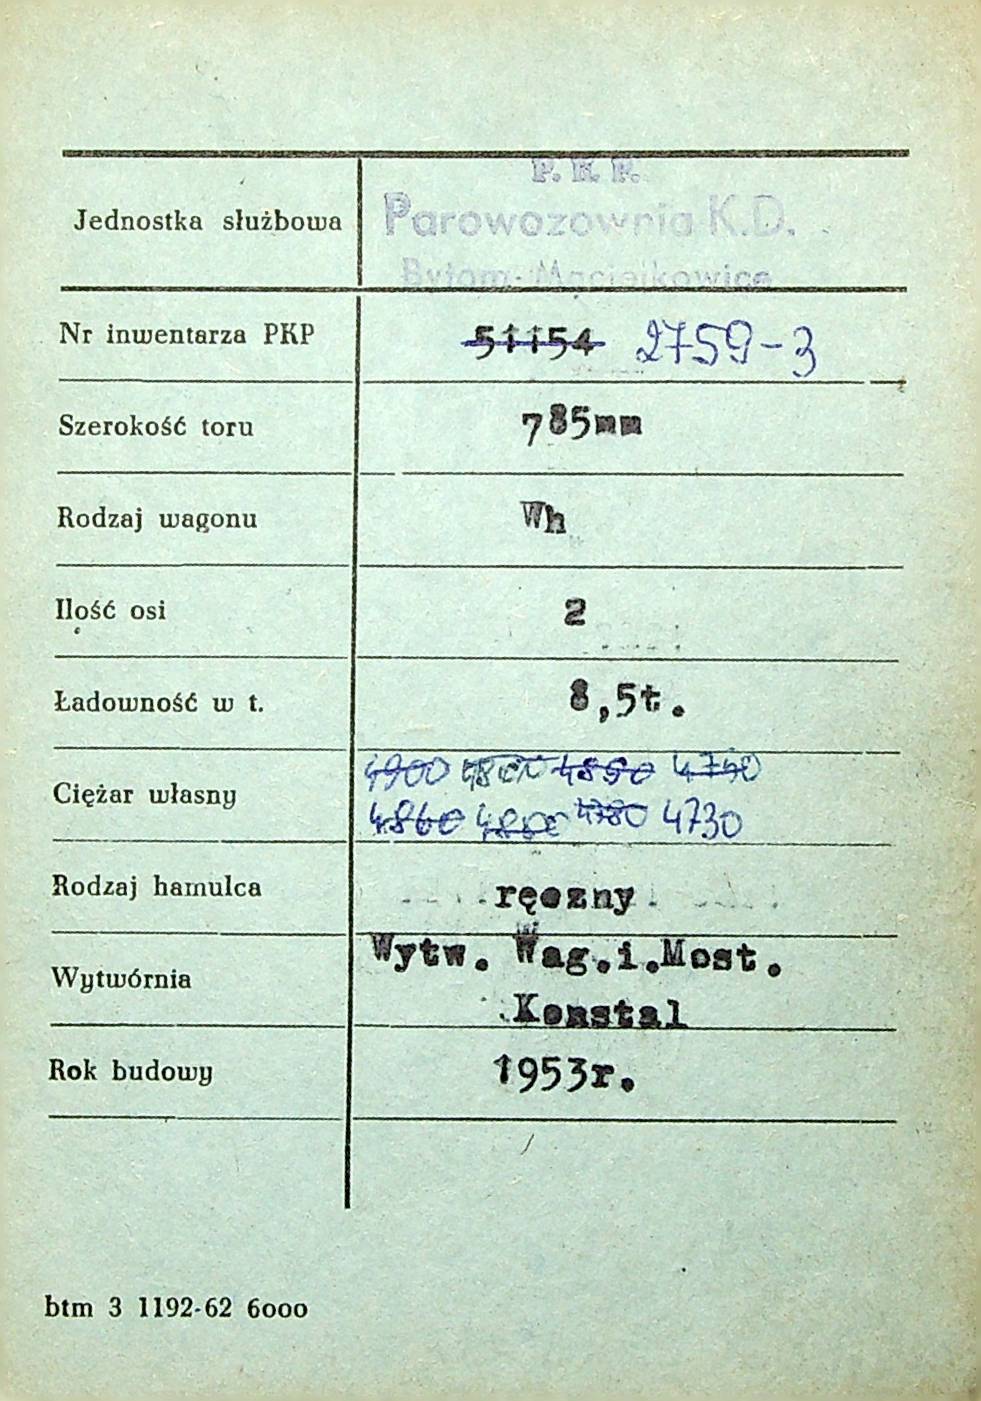 P. K. P.
Jednostka służbowa Parowozownia K.D.
Bytom-Maciejkowice
Nr inwentarza PKP 51154 2759-3
Szerokość toru 785mm
Rodzaj wagonu Wh
Ilość osi 2
Ładowność w t. 8,5t.
4900 4890 4740
Ciężar własny
4860 4780 4730
Rodzaj hamulca ręczny
Wytw. Wag.i.Most.
Wytwórnia
Konstal
Rok budowy 1953r.
btm 3 1192-62 6000